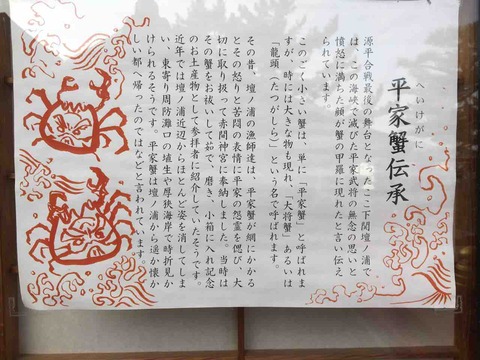 へいけがに
平家蟹伝承
源平合戦最後の舞台となったここ下関壇ノ浦で
は、この海峡で滅びた平家武将の無念の思いと
憤怒に満ちた顔が蟹の甲羅に現れたと言い伝え
られています。
このごく小さい蟹は、単に「平家蟹」と呼ばれま
すが、時には大きな物も現れ、「大将蟹」あるいは
「龍頭（たつがしら）」という名で呼ばれます。
その昔、壇ノ浦の漁師達は、平家蟹が網にかかる
とその怒りと苦悶の表情に平家の怨霊を偲び、大
切に取り扱って赤間神宮に奉納しました。当時は
その蟹をお祓いして茹で、磨き、小箱に入れ記念
のお土産物として参拝者に紹介して、たそうです。
近年では壇ノ浦近辺からほとんど姿を消してしま
い、東寄り周防灘口の埴生や厚狭海岸で時折見か
けられるそうです。平家蟹は壇ノ浦から遥か懐か
しい都へ帰ったのではなどと言われています。